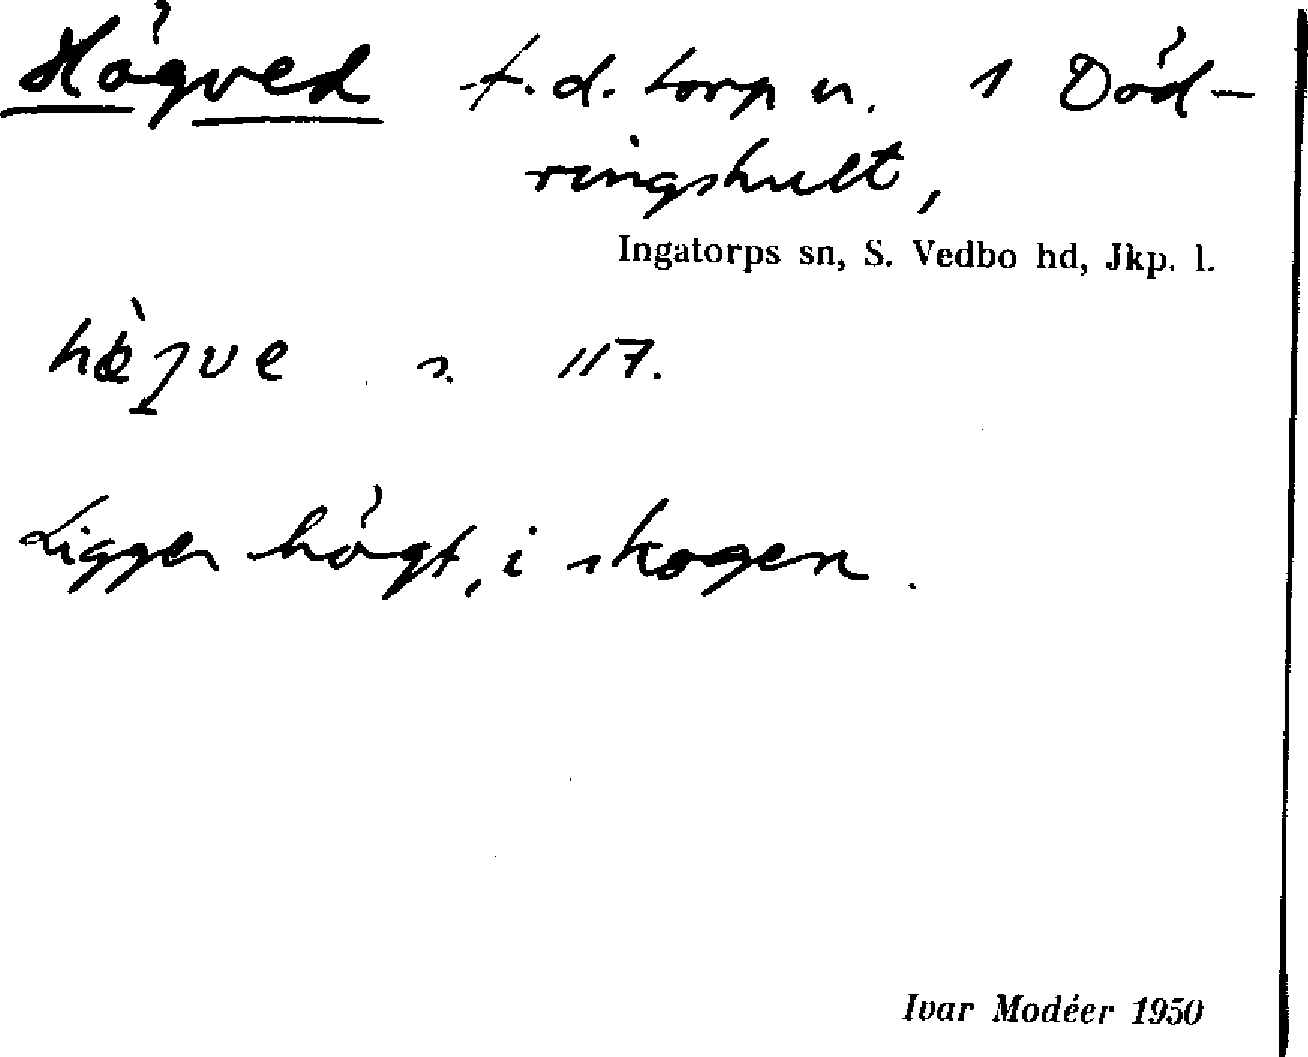 Högved f.d. torp u. 1 Död-
ringshult,
Ingatorps sn, S. Vedbo hd, Jkp. l.
117.
Ligger högt, i skogen.
Ivar Modéer 1950